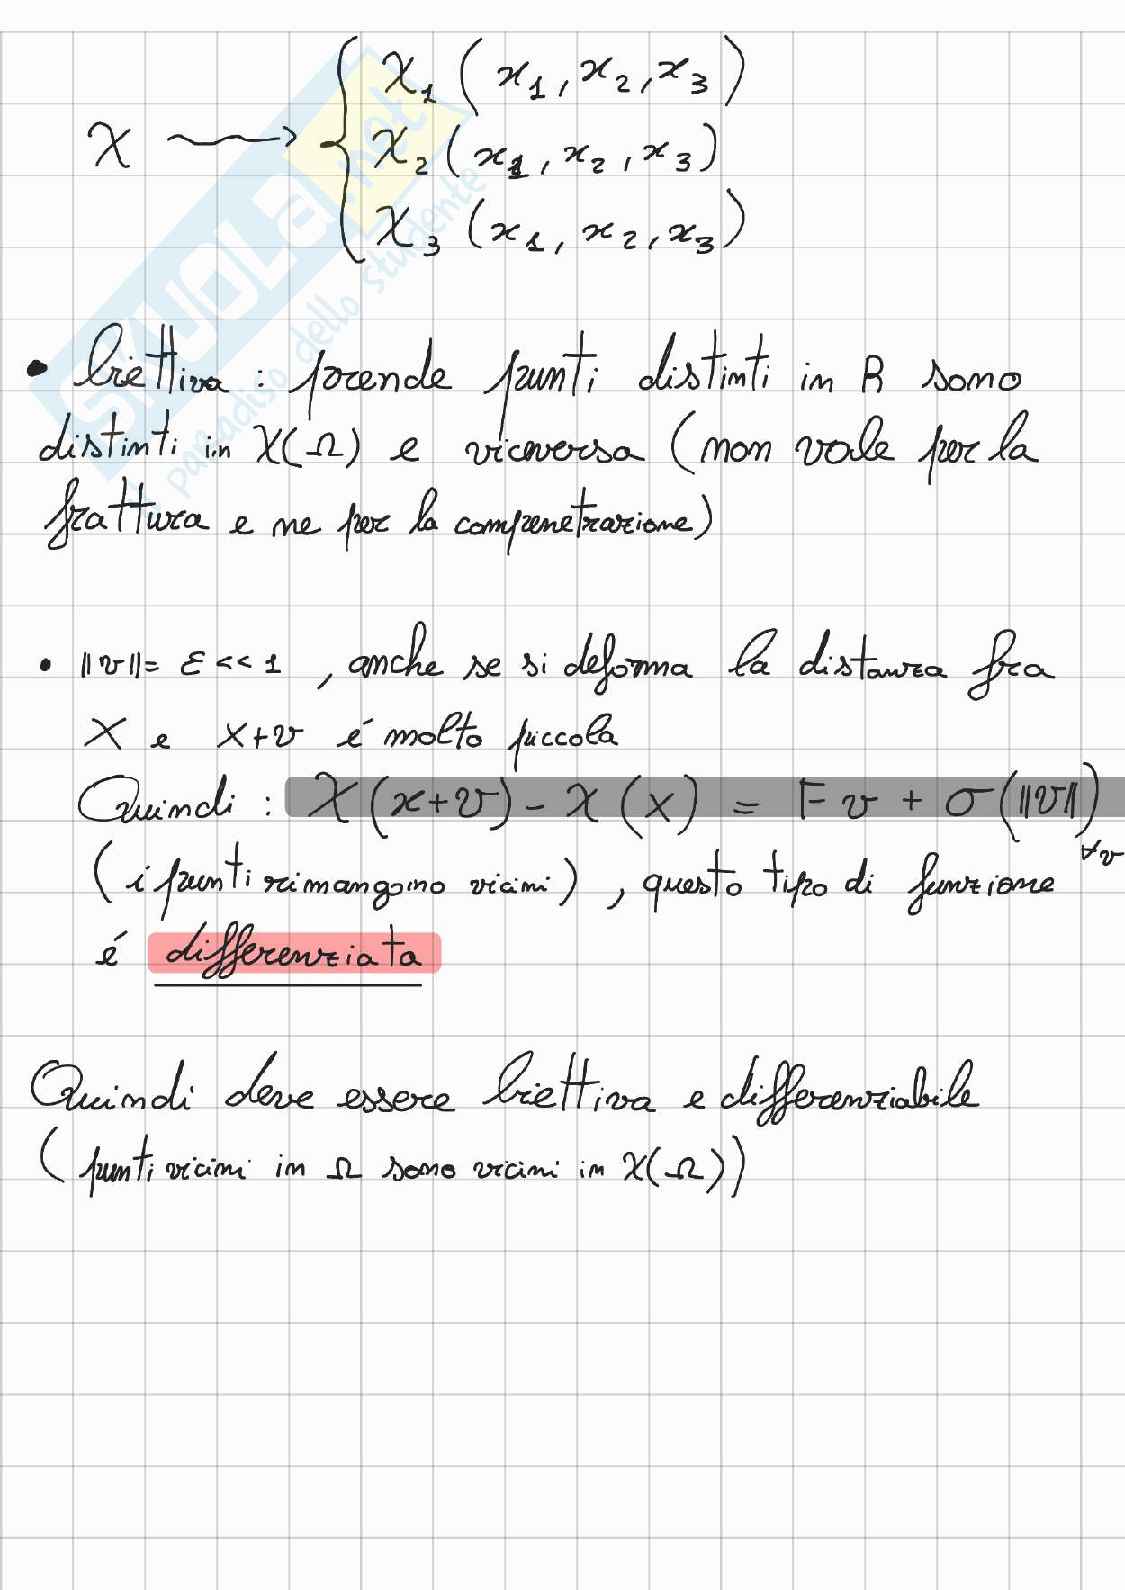 χ → { χ₁ (x₁, x₂, x₃)
χ₂ (x₁, x₂, x₃)
χ₃ (x₁, x₂, x₃)
SKUOLa.net
il paradiso dello studente
• biettiva : prende punti distinti in R sono
distinti in χ(Ω) e viceversa (non vale per la
frattura e ne per la compenetrazione)
• ||v|| = ε << 1 , anche se si deforma la distanza fra
X e X+v é molto piccola
Quindi : χ(x+v) - χ(x) = F v + σ(||v||) ∀v
(i punti rimangono vicini) , questo tipo di funzione
é differenziata
Quindi deve essere biettiva e differenziabile
(punti vicini in Ω sono vicini in χ(Ω))